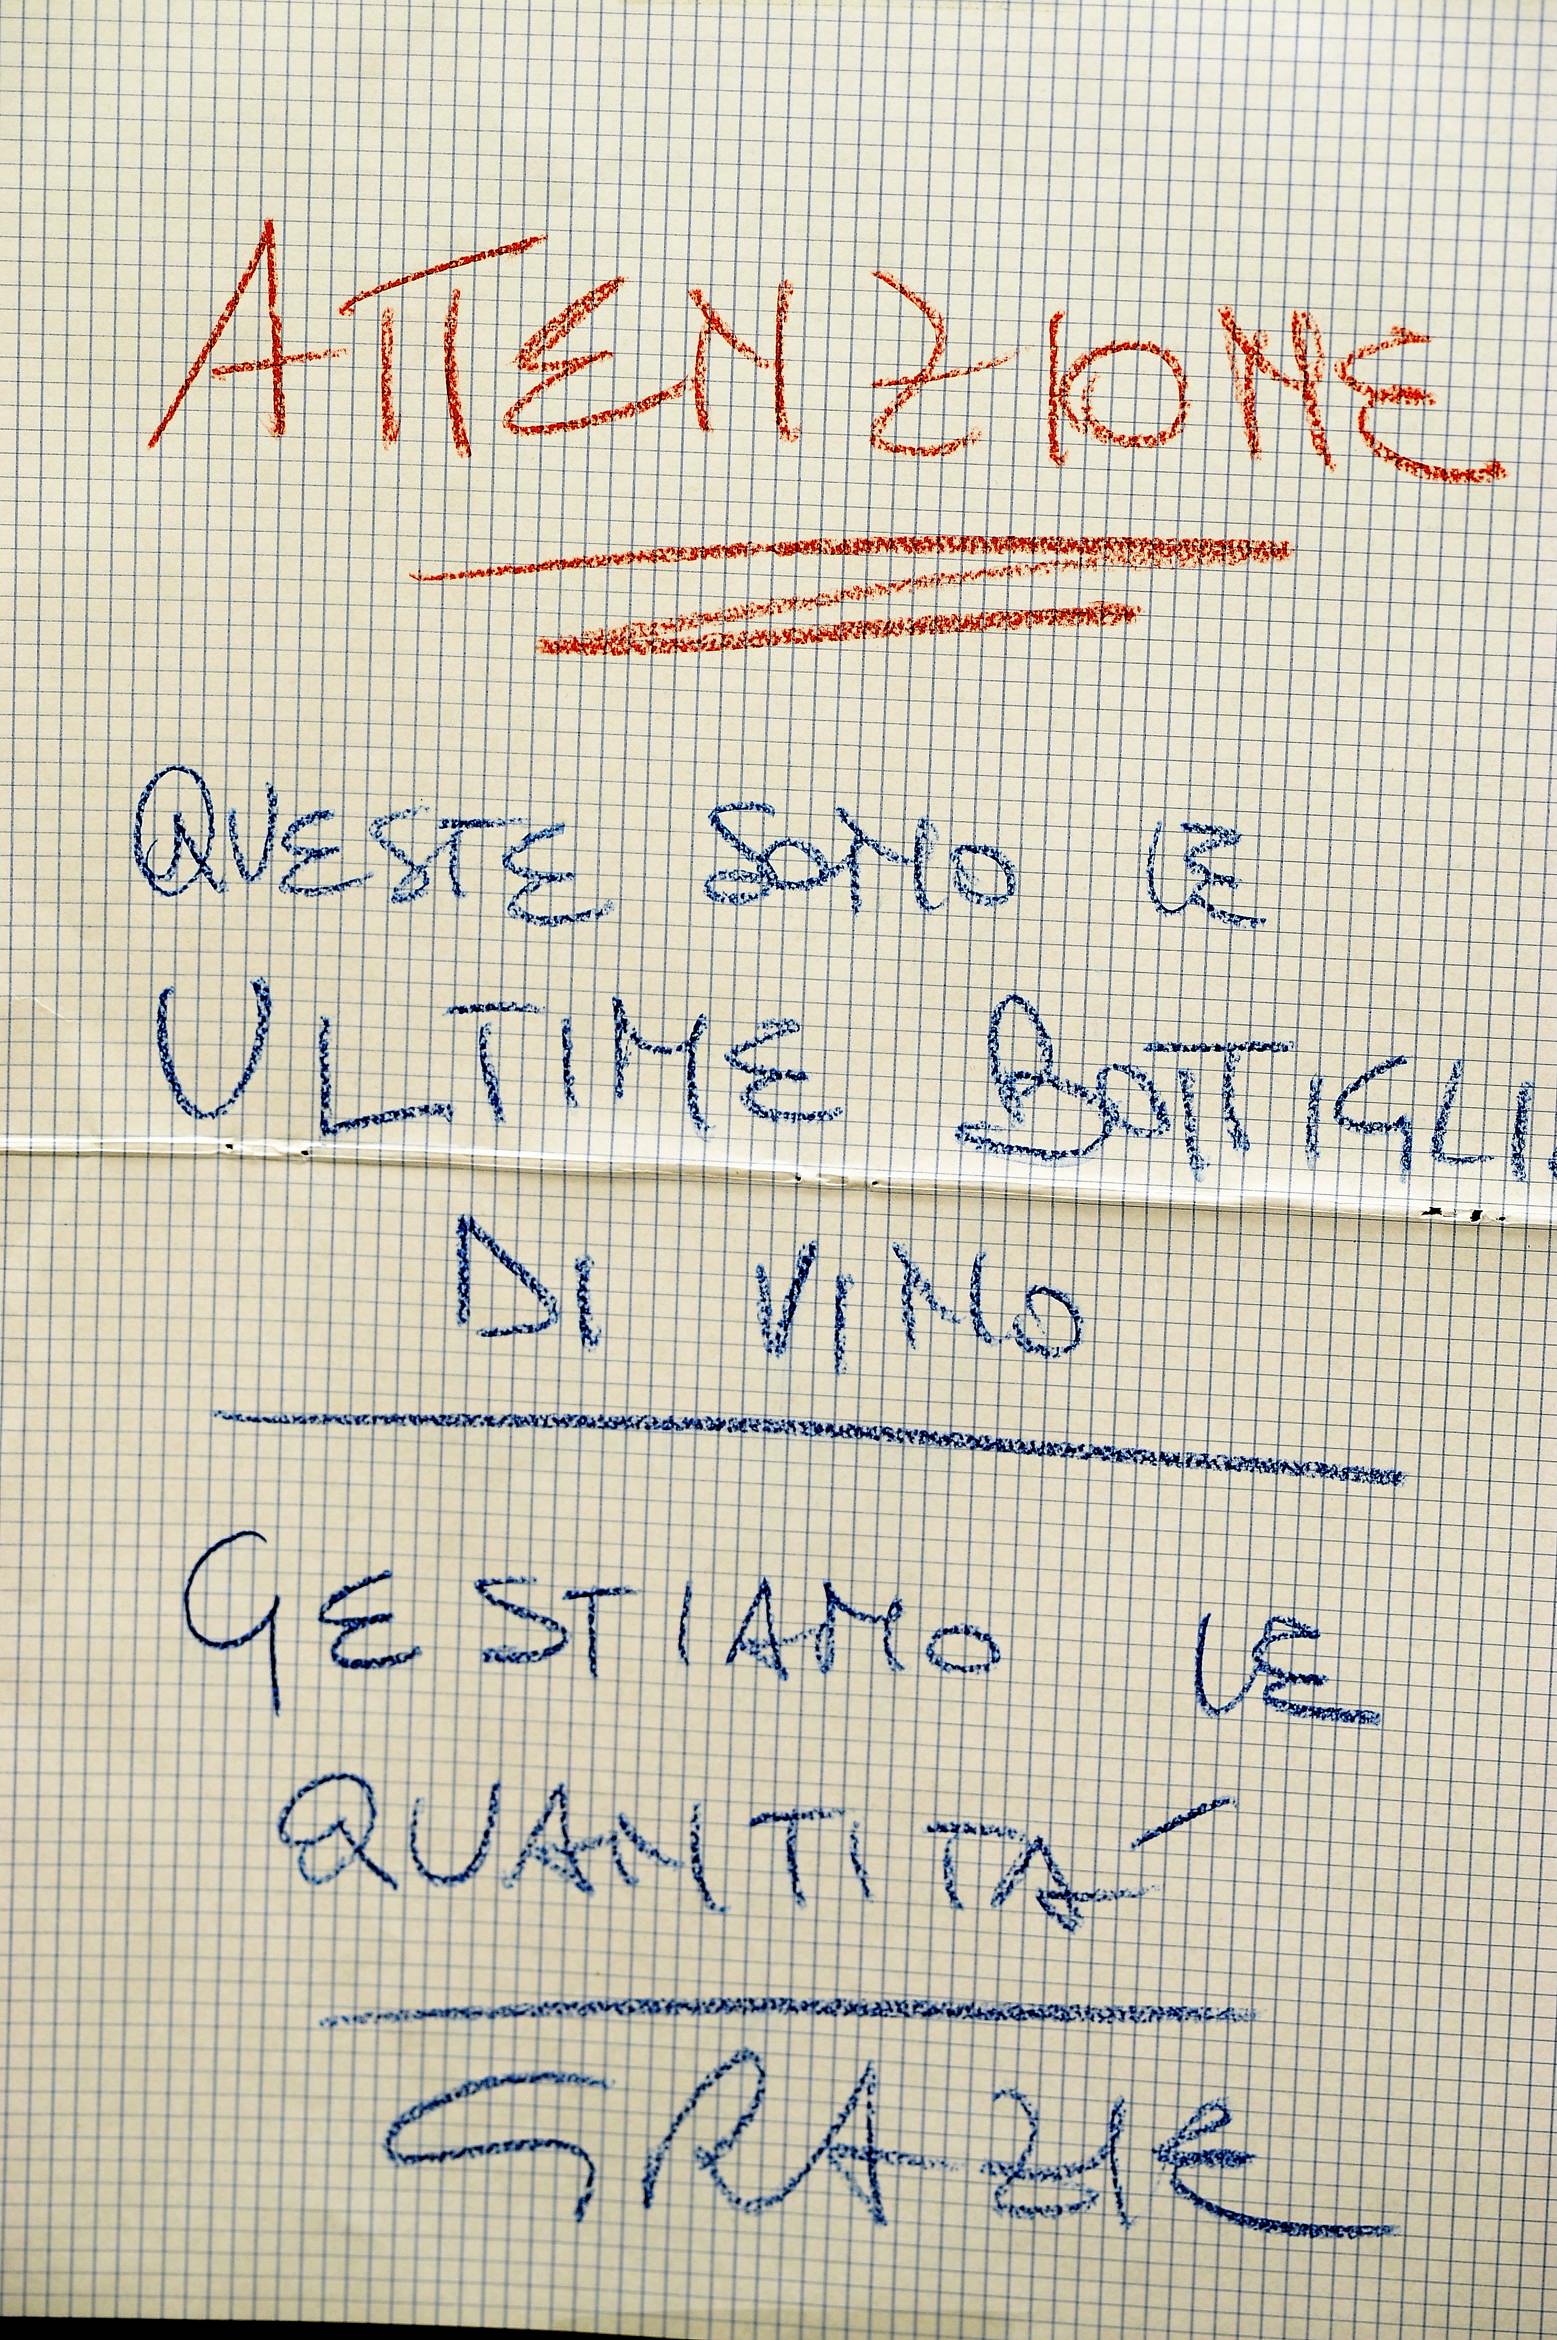 ATTENZIONE
QUESTE SONO LE
ULTIME BOTTIGLIE
DI VINO
GESTIAMO LE
QUANTITA'
GRAZIE